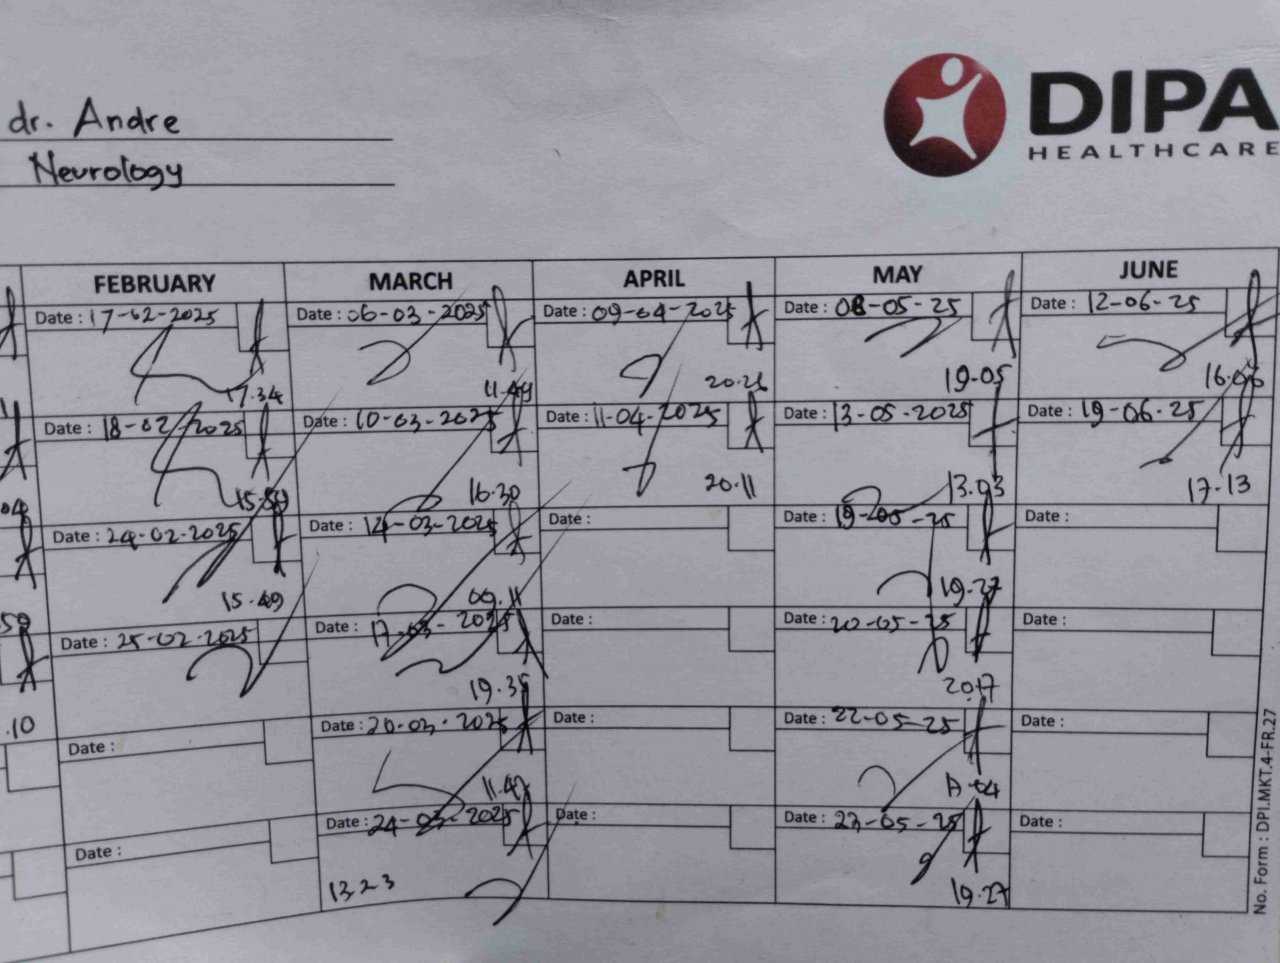 dr. Andre
Neurology
DIPA
HEALTHCARE
FEBRUARY MARCH APRIL MAY JUNE
Date : 17-02-2025 Date : 06-03-2025 Date : 09-04-2025 Date : 08-05-25 Date : 12-06-25
17.34 11.49 20.26 19.05 16.06
Date : 18-02-2025 Date : 10-03-2025 Date : 11-04-2025 Date : 13-05-2025 Date : 19-06-25
15.59 16.30 20.11 13.03 17.13
Date : 24-02-2025 Date : 14-03-2025 Date : Date : 19-05-25 Date :
15.49 09.11 19.27
Date : 25-02-2025 Date : 17-03-2025 Date : Date : 20-05-25 Date :
.10 19.35 20.17
Date : Date : 20-03-2025 Date : Date : 22-05-25 Date :
11.47
Date : Date : 24-03-2025 Date : Date : 23-05-25 Date :
13.23 19.27
No. Form : DPI.MKT.4-FR.27